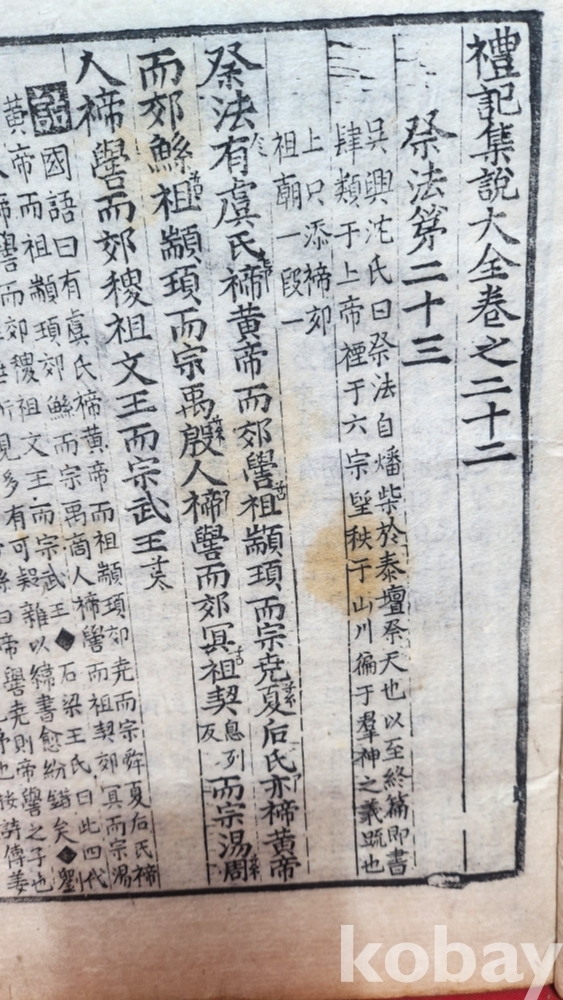 禮記集說大全卷之二十二
祭法第二十三
吳興沈氏曰祭法自燔柴於泰壇祭天也以至終篇即書
肆類于上帝禋于六宗望秩于山川徧于羣神之義䟽也
上只添禘郊
祖廟一段一
祭法有虞氏禘黃帝而郊嚳祖顓頊而宗堯夏后氏亦禘黃帝
而郊鯀祖顓頊而宗禹殷人禘嚳而郊冥祖契息列反而宗湯周
人禘嚳而郊稷祖文王而宗武王
國語曰有虞氏禘黃帝而祖顓頊郊堯而宗舜夏后氏禘
黃帝而祖顓頊郊鯀而宗禹商人禘嚳而祖契郊冥而宗湯
人禘嚳而郊稷祖文王而宗武王◆石梁王氏曰此四代
所見多有可疑雜以緯書愈紛錯矣◆劉
曰帝嚳堯則帝嚳之子也
也按詩傳姜
kobay